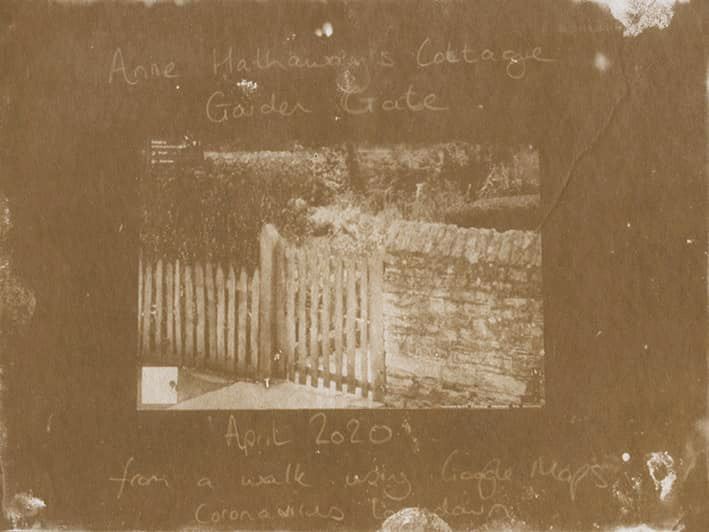 Anne Hathaway's Cottage
Garden Gate
April 2020
from a walk using Google Maps
Coronavirus Lockdown